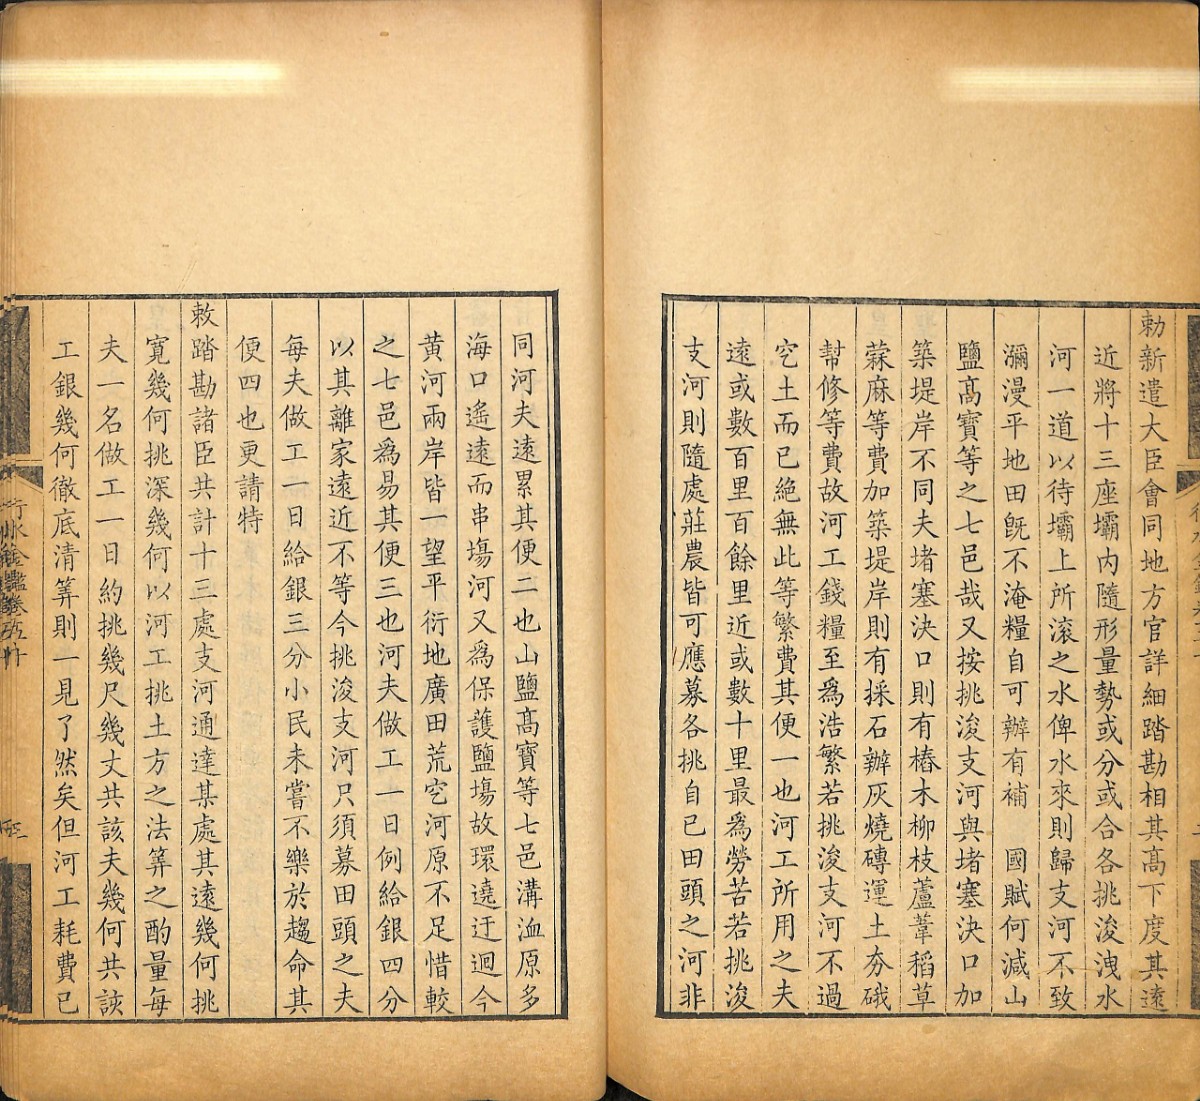 勅新遣大臣會同地方官詳細踏勘相其髙下度其遠
近將十三座壩内隨形量勢或分或合各挑浚洩水
河一道以待壩上所滚之水俾水來則歸支河不致
瀰漫平地田旣不淹糧自可辦有補　國賦何減山
鹽髙寶等之七邑哉又按挑浚支河與堵塞決口加
築堤岸不同夫堵塞決口則有樁木柳枝蘆葦稻草
蔴麻等費加築堤岸則有採石辦灰燒磚運土夯硪
幇修等費故河工錢糧至爲浩繁若挑浚支河不過
穵土而已絶無此等繁費其便一也河工所用之夫
遠或數百里百餘里近或數十里最爲勞苦若挑浚
支河則隨處莊農皆可應募各挑自已田頭之河非
同河夫遠累其便二也山鹽髙寶等七邑溝洫原多
海口遙遠而串塲河又爲保護鹽塲故環遶迂迴今
黄河兩岸皆一望平衍地廣田荒穵河原不足惜較
之七邑爲易其便三也河夫做工一日例給銀四分
以其離家遠近不等今挑浚支河只須募田頭之夫
每夫做工一日給銀三分小民未嘗不樂於趨命其
便四也更請特
敕踏勘諸臣共計十三處支河通達某處其遠幾何挑
寛幾何挑深幾何以河工挑土方之法筭之酌量每
夫一名做工一日約挑幾尺幾丈共該夫幾何共該
工銀幾何徹底清筭則一見了然矣但河工耗費已
行水金鑑卷五十